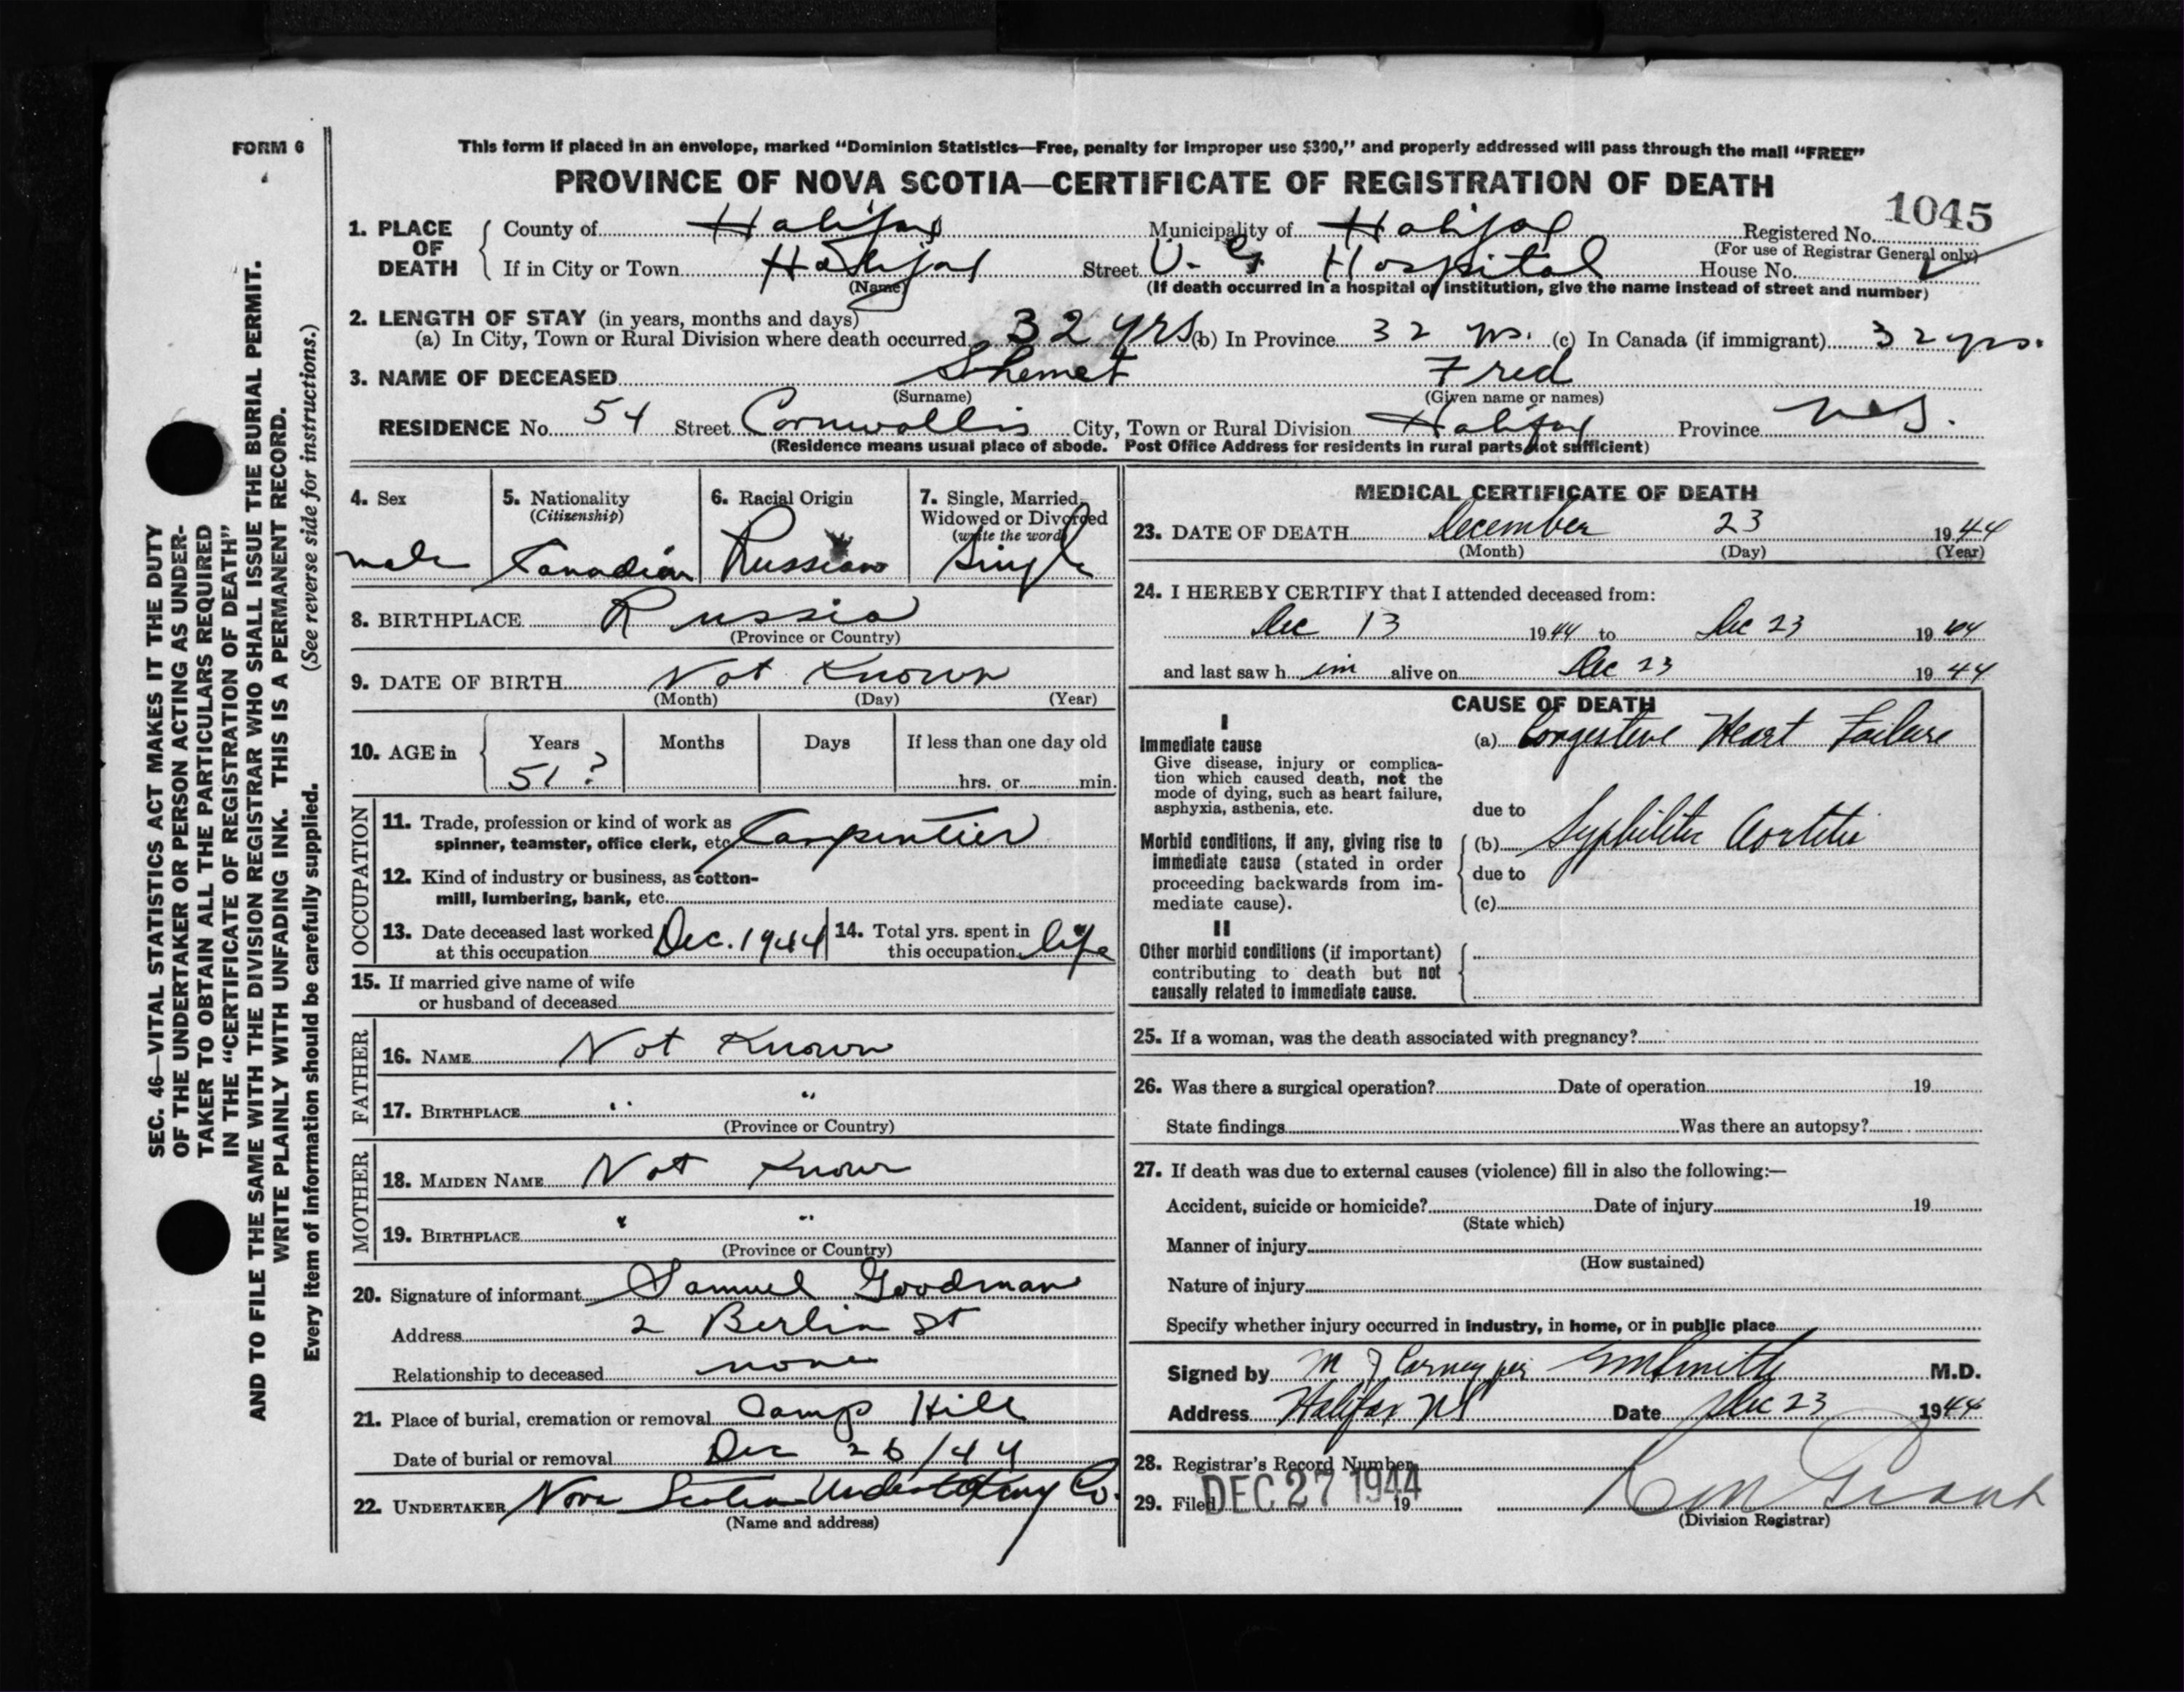 FORM 6
This form if placed in an envelope, marked "Dominion Statistics—Free, penalty for improper use $300," and properly addressed will pass through the mail "FREE"
PROVINCE OF NOVA SCOTIA—CERTIFICATE OF REGISTRATION OF DEATH
1045
1. PLACE OF DEATH County of Halifax Municipality of Halifax Registered No.
(For use of Registrar General only)
If in City or Town Halifax Street V. G Hospital House No.
(Name) (If death occurred in a hospital or institution, give the name instead of street and number)
2. LENGTH OF STAY (in years, months and days)
(a) In City, Town or Rural Division where death occurred 32 yrs (b) In Province 32 yrs. (c) In Canada (if immigrant) 32 yrs.
3. NAME OF DECEASED Shemet Fred
(Surname) (Given name or names)
RESIDENCE No. 54 Street Cornwallis City, Town or Rural Division Halifax Province N.S.
(Residence means usual place of abode. Post Office Address for residents in rural parts not sufficient)
SEC. 46—VITAL STATISTICS ACT MAKES IT THE DUTY
OF THE UNDERTAKER OR PERSON ACTING AS UNDER-
TAKER TO OBTAIN ALL THE PARTICULARS REQUIRED
IN THE "CERTIFICATE OF REGISTRATION OF DEATH"
AND TO FILE THE SAME WITH THE DIVISION REGISTRAR WHO SHALL ISSUE THE BURIAL PERMIT.
WRITE PLAINLY WITH UNFADING INK. THIS IS A PERMANENT RECORD.
Every item of information should be carefully supplied. (See reverse side for instructions.)
4. Sex
male
5. Nationality
(Citizenship)
Canadian
6. Racial Origin
Russian
7. Single, Married,
Widowed or Divorced
(write the word)
Single
8. BIRTHPLACE Russia
(Province or Country)
9. DATE OF BIRTH Not Known
(Month) (Day) (Year)
10. AGE in Years Months Days If less than one day old
51? hrs. or min.
OCCUPATION
11. Trade, profession or kind of work as
spinner, teamster, office clerk, etc. Carpentier
12. Kind of industry or business, as cotton-
mill, lumbering, bank, etc.
13. Date deceased last worked
at this occupation Dec. 1944
14. Total yrs. spent in
this occupation life
15. If married give name of wife
or husband of deceased
FATHER
16. NAME Not Known
17. BIRTHPLACE " "
(Province or Country)
MOTHER
18. MAIDEN NAME Not Known
19. BIRTHPLACE " "
(Province or Country)
20. Signature of informant Samuel Goodman
Address 2 Berlin St
Relationship to deceased none
21. Place of burial, cremation or removal Camp Hill
Date of burial or removal Dec 26/44
22. UNDERTAKER Nova Scotia Undertaking Co.
(Name and address)
MEDICAL CERTIFICATE OF DEATH
23. DATE OF DEATH December 23 1944
(Month) (Day) (Year)
24. I HEREBY CERTIFY that I attended deceased from:
Dec 13 1944 to Dec 23 1944
and last saw him alive on Dec 23 1944
CAUSE OF DEATH
I
Immediate cause
Give disease, injury or complica-
tion which caused death, not the
mode of dying, such as heart failure,
asphyxia, asthenia, etc.
(a) Congestive Heart Failure
due to
Morbid conditions, if any, giving rise to
immediate cause (stated in order
proceeding backwards from im-
mediate cause).
(b) Syphilitic Aortitis
due to
(c)
II
Other morbid conditions (if important)
contributing to death but not
causally related to immediate cause.
25. If a woman, was the death associated with pregnancy?
26. Was there a surgical operation? Date of operation 19
State findings Was there an autopsy?
27. If death was due to external causes (violence) fill in also the following:—
Accident, suicide or homicide? Date of injury 19
(State which)
Manner of injury
(How sustained)
Nature of injury
Specify whether injury occurred in industry, in home, or in public place
Signed by M J Carney per GM Smith M.D.
Address Halifax NS Date Dec 23 1944
28. Registrar's Record Number
29. Filed DEC 27 1944 19 Grant
(Division Registrar)